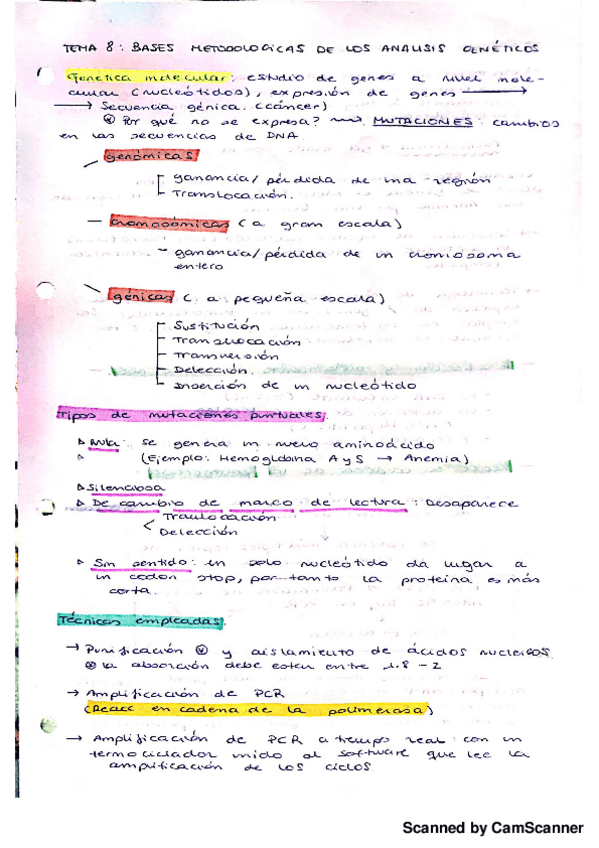 TEMA 8: BASES METODOLOGICAS DE LOS ANALISIS GENÉTICOS
Genética molecular: estudio de genes a nivel mole-
cular (nucleótidos), expresión de genes →
→ Secuencia génica. (cáncer)
¿Por qué no se expresa? → MUTACIONES: cambios
en las secuencias de DNA.
genómicas
ganancia/pérdida de una región
Translocación.
— Cromosómicas (a gran escala)
- ganancia/pérdida de un cromosoma
entero
génicas (a pequeña escala)
Sustitución
Translocación
Transversión
Delección.
Inserción de un nucleótido
Tipos de mutaciones puntuales.
se genera un nuevo aminoácido
(Ejemplo: Hemoglobina A y S → Anemia)
Silenciosa
De cambio de marco de lectura: Desaparece
Delección
Sin sentido: un solo nucleótido da lugar a
un codon stop, por tanto la proteína es más
corta.
Técnicas empleadas.
→ Purificación y aislamiento de ácidos nucleicos.
la absorción debe estar entre 1.8 - 2
→ Amplificación de PCR
(Reacc en cadena de la polimerasa)
→ Amplificación de PCR a tiempo real: con un
termociclador unido al software que lee la
amplificación de los ciclos.
Scanned by CamScanner